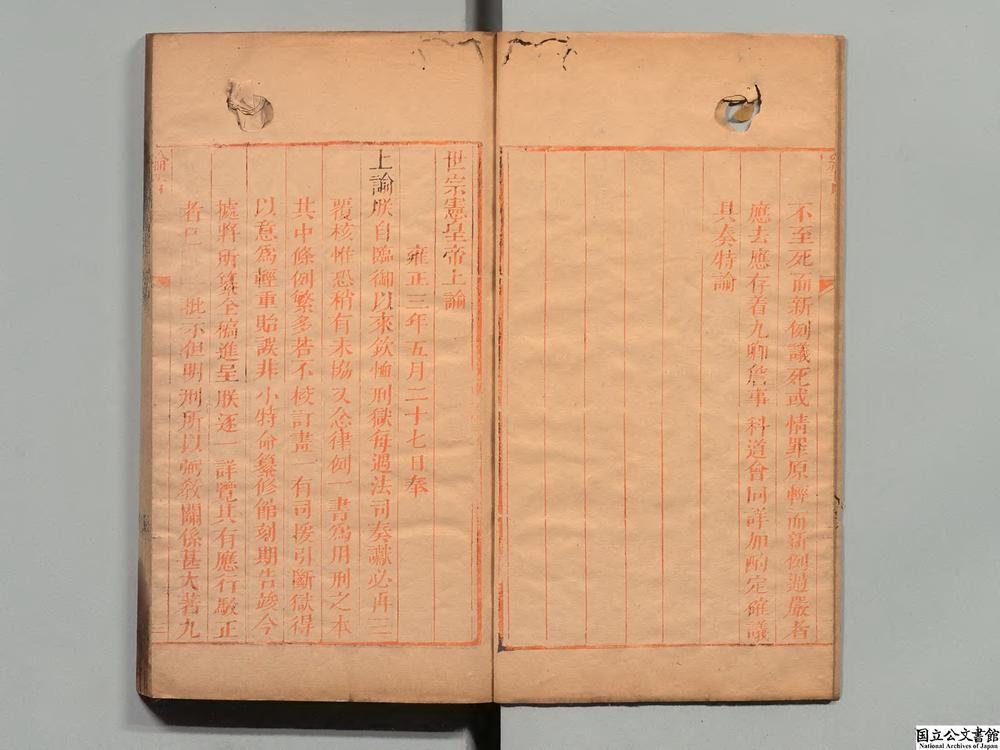 不至死而新例議死或情罪原輕而新例過嚴者
應去應存着九卿詹事科道會同詳加酌定確議
具奏特諭
世宗憲皇帝上諭
雍正三年五月二十七日奉
上諭朕自臨御以來欽恤刑獄每遇法司奏讞必再三
覆核惟恐稍有未協又念律例一書爲用刑之本
其中條例繁多若不校訂畫一有司援引斷獄得
以意爲輕重貽誤非小特命纂修館刻期告竣今
據將所纂全稿進呈朕逐一詳覽其有應行駁正
者已批示但明刑所以弼敎關係甚大著九
国立公文書館
National Archives of Japan